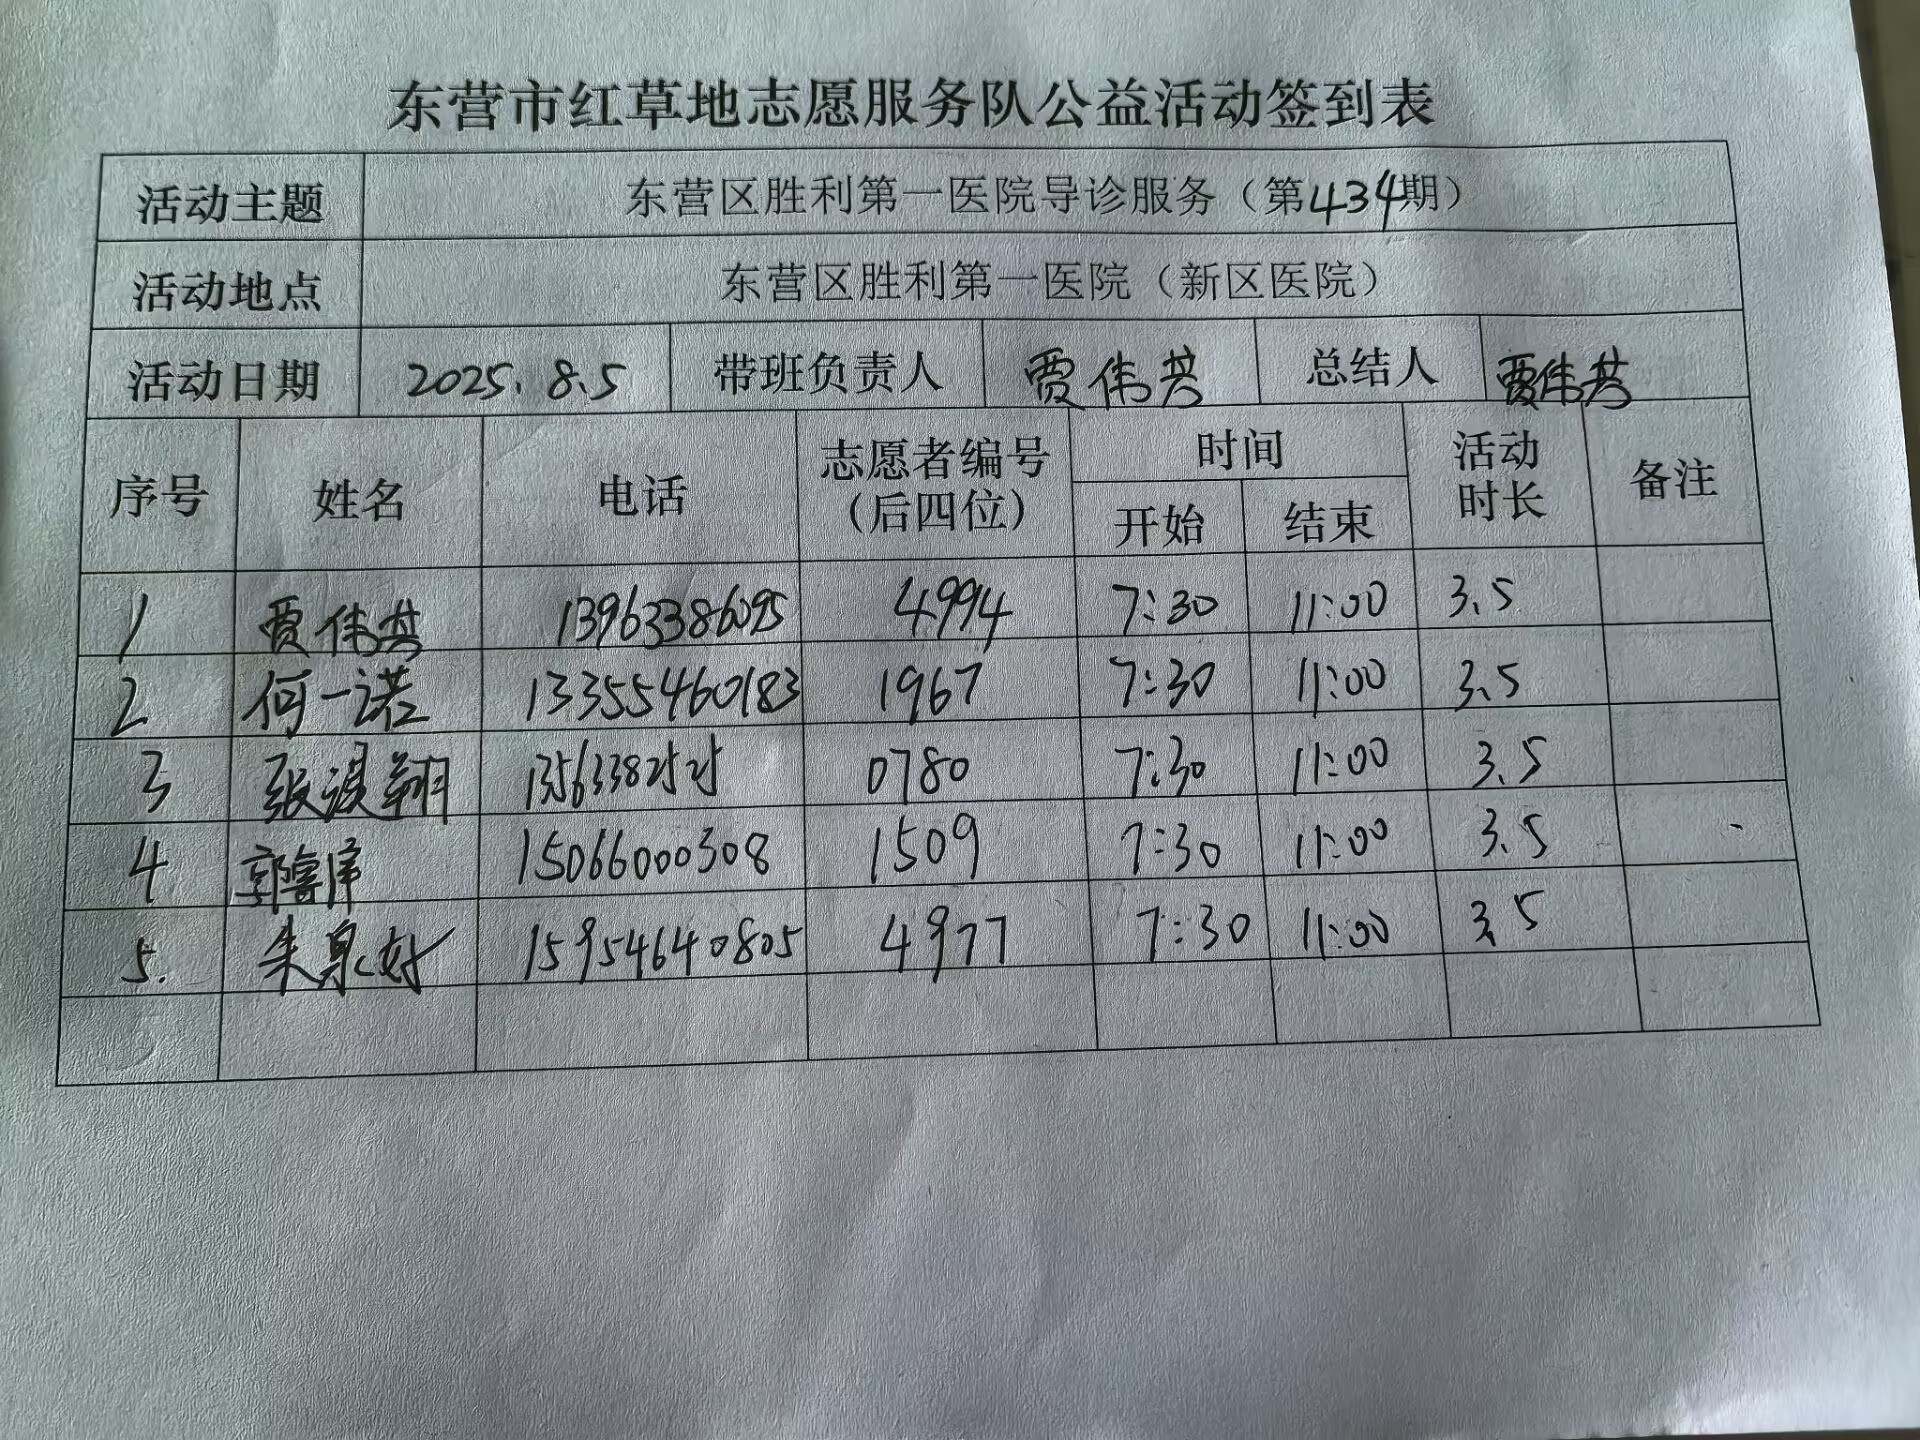 东营市红草地志愿服务队公益活动签到表
活动主题 东营区胜利第一医院导诊服务（第434期）
活动地点 东营区胜利第一医院（新区医院）
活动日期 2025.8.5 带班负责人 贾伟芸 总结人 贾伟芸
序号 姓名 电话 志愿者编号（后四位） 时间 开始 结束 活动时长 备注
1 贾伟芸 13963386095 4994 7:30 11:00 3.5
2 何一诺 13355460183 1967 7:30 11:00 3.5
3 张淏翔 13563382525 0780 7:30 11:00 3.5
4 郭 15066000308 1509 7:30 11:00 3.5
5. 朱泉好 15954640805 4977 7:30 11:00 3.5